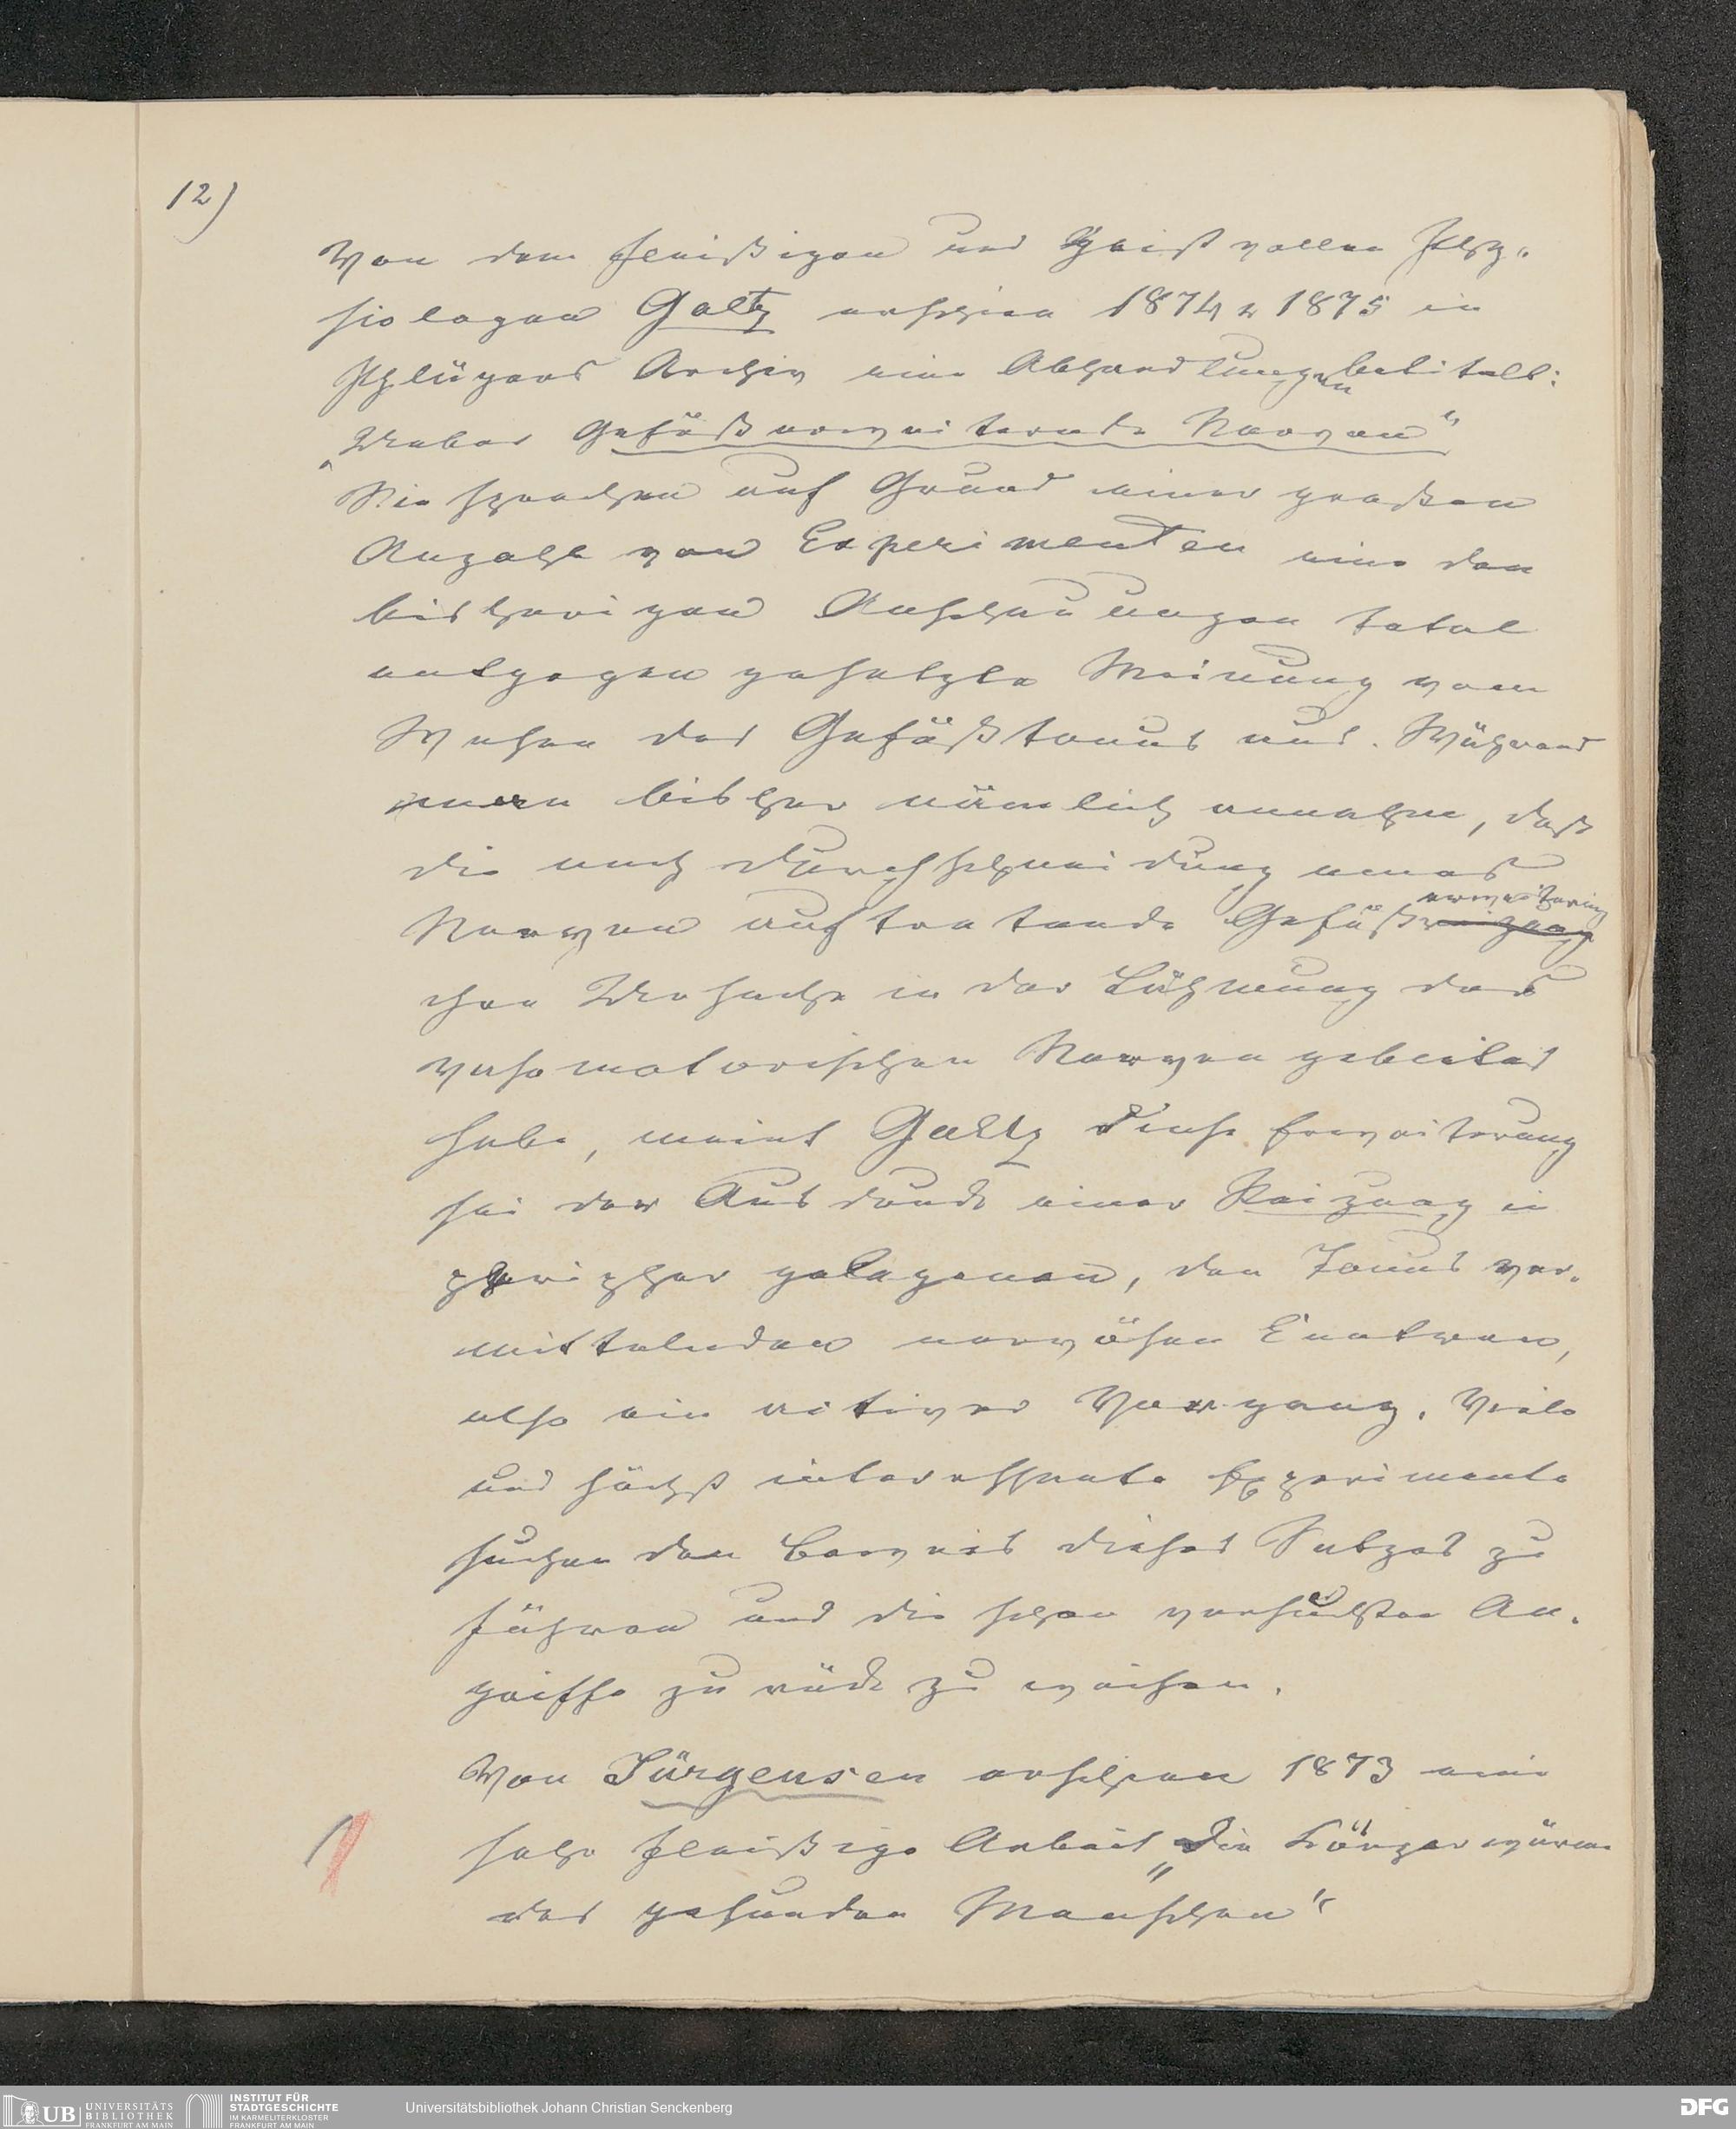 12)
Von dem fleißigen und Geistvollen Phy-
siologen Goltz erschien 1874 u 1875 in
Pflügers Archiv eine Abhandlungen betitelt:
„Ueber Gefäßerweiternde Nerven“
Sie sprechen auf Grund einer großen
Anzahl von Experimenten eine den
bisherigen Anschauungen total
entgegen gesetzte Meinung vom
Wesen des Gefäßtonus aus. Während
man bisher nämlich annahm, daß
die nach Durchschneidung eines
Nerven auftretende Gefäß
erweiterung
ihre Ursache in der Lähmung des
vasomotorischen Nerven gebietes
habe, meint Goltz diese Erweiterung
sei der Ausdruck einer Reizung in
peripher gelegenen, den Tonus ver-
mittelnden nervösen Centren,
also ein activer Vorgang. Viele
und höchst interessante Experimente
suchen den Beweis dieses Satzes zu
führen und die schon versuchten An-
griffe zurück zu weisen.
Von Jürgensen erschien 1873 eine
sehr fleißige Arbeit „Die Körperwärme
des gesunden Menschen“
UB UNIVERSITÄTS BIBLIOTHEK FRANKFURT AM MAIN
INSTITUT FÜR STADTGESCHICHTE IM KARMELITERKLOSTER FRANKFURT AM MAIN
Universitätsbibliothek Johann Christian Senckenberg
DFG